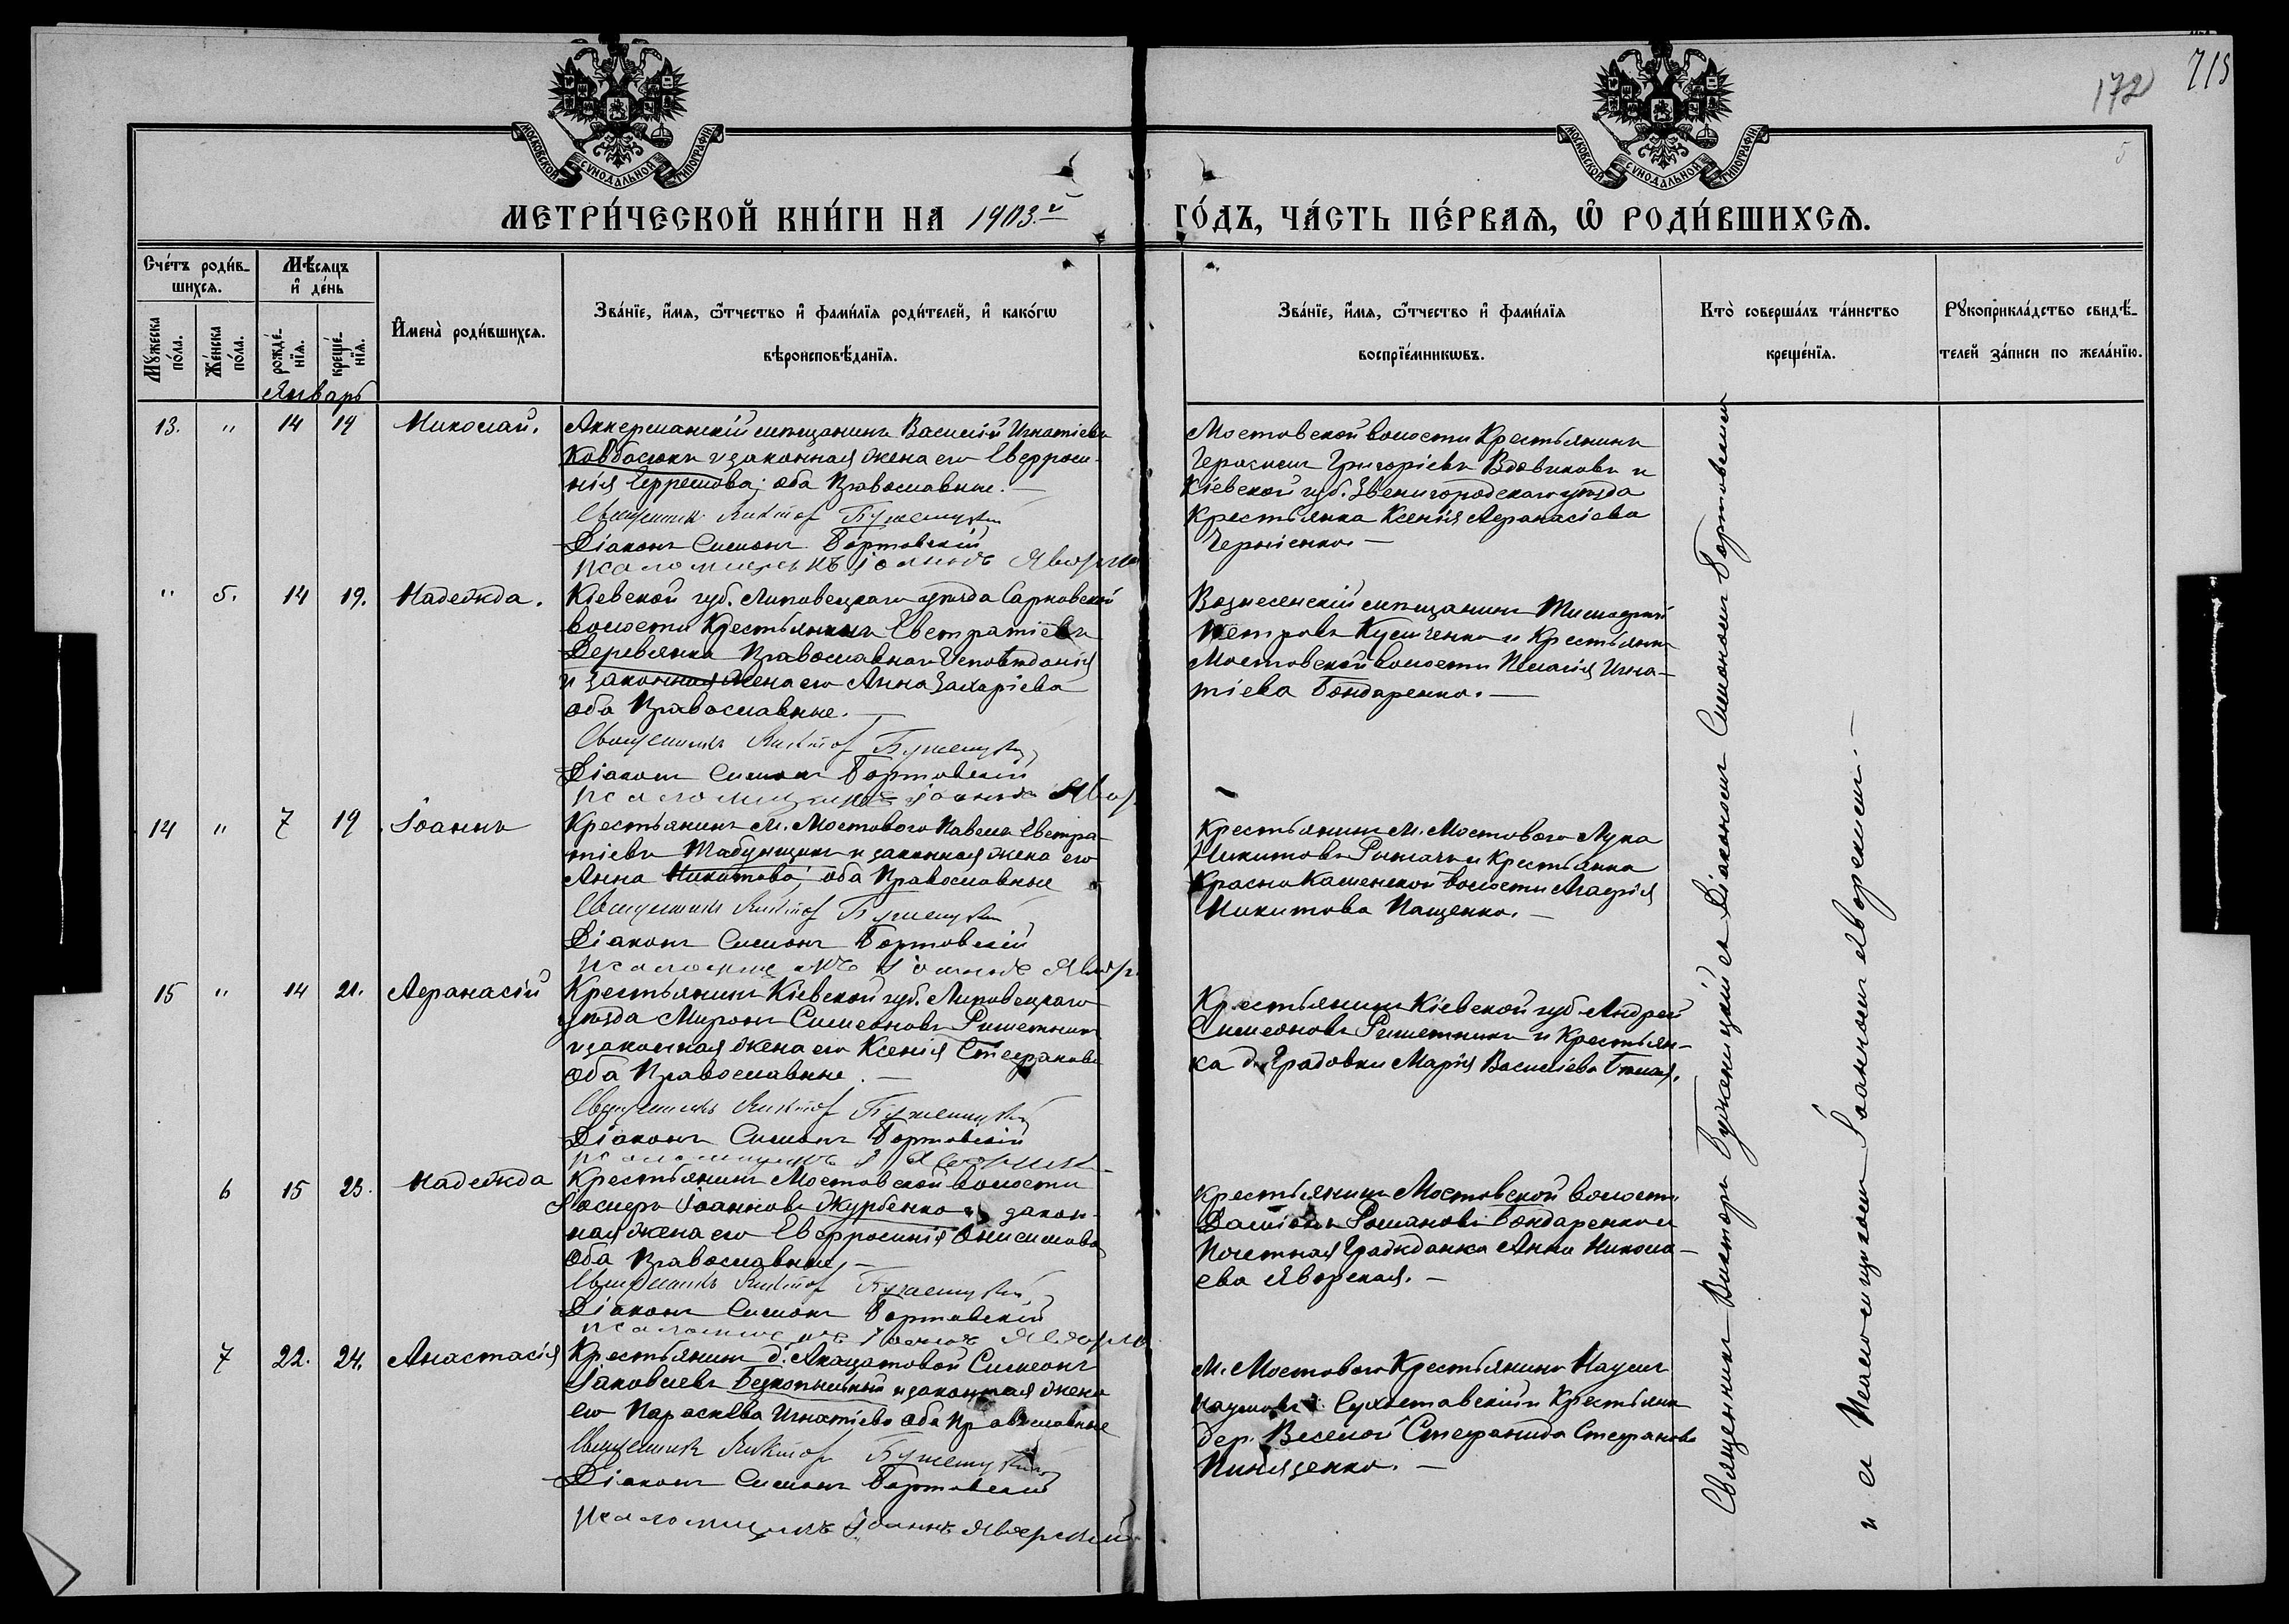 172
715
5
МОСКОВСКОЙ СѴНОДАЛЬНОЙ ТИПОГРАФІИ
МОСКОВСКОЙ СѴНОДАЛЬНОЙ ТИПОГРАФІИ
МЕТРИ́ЧЕСКОЙ КНИ́ГИ НА 1903.й
ГО́ДЪ, ЧА́СТЬ ПЕ́РВАѦ, Ѡ҆ РОДИ́ВШИХСѦ.
Сче́тъ роди́в-
шихсѧ.
Мѣ́сѧцъ
и҆ де́нь
Мꙋ́жеска
по́ла.
Же́нска
по́ла.
рожде́-
нїѧ.
креще́-
нїѧ.
И҆мена̀ роди́вшихсѧ.
Зва́нїе, и҆́мѧ, ѻ҆́тчество и҆ фами́лїѧ роди́телей, и҆ како́гѡ
вѣроисповѣ́данїѧ.
Зва́нїе, и҆́мѧ, ѻ҆́тчество и҆ фами́лїѧ
воспрїе́мникѡвъ.
Кто̀ соверша́лъ та́инство
креще́нїѧ.
Рꙋкоприкла́дство свидѣ́-
телей за́писи по жела́нїю.
Январь
13. " 14 19 Николай.
Аккерманскій мѣщанинъ Василій Игнатіевъ
Ковбасюкъ и законная жена его Евфроси-
нія Ефремова; оба Православные.—
Священникъ Виктор Бужемуцкій
Діаконъ Симеонъ Бортовскій
псаломщикъ Іоаннъ Яворск
Мостовской волости Крестьянинъ
Герасимъ Григоріевъ Вдовиковъ и
Кіевской губ. Звенигородскаго уѣзда
Крестьянка Ксенія Афанасіева
Черніенко.—
" 5. 14 19. Надежда.
Кіевской губ. Липовецкаго уѣзда Сарновской
волости Крестьянинъ Евстратіевъ
Деревянка Православнаго Исповѣданія
и законная жена его Анна Захаріева
оба Православные.—
Священникъ Виктор Бужемуцкій
Діаконъ Симеонъ Бортовскій
псаломщикъ Іоаннъ Явор
Вознесенскій мѣщанинъ Тимофей
Петровъ Кузьменко и Крестьянка
Мостовской волости Пелагія Игна-
тіева Бондаренко.—
14 " 7 19 Іоаннъ
Крестьянинъ м. Мостового Павелъ Евстра-
тіевъ Табунщикъ и законная жена его
Анна Никитова; оба Православные
Священникъ Виктор Бужемуцкій
Діаконъ Симеонъ Бортовскій
псаломщикъ Іоаннъ Явор
Крестьянинъ м. Мостового Лука
Никитовъ и Крестьянка
Краснокаменской волости Марія
Никитова Пащенко.—
15 " 14 21. Афанасій
Крестьянинъ Кіевской губ. Липовецкаго
уѣзда Миронъ Симеоновъ Решетникъ
и законная жена его Ксенія Стефанова
оба Православные.—
Священникъ Виктор Бужемуцкій
Діаконъ Симеонъ Бортовскій
псаломщикъ І Яворскій
Крестьянинъ Кіевской губ. Андрей
Симеоновъ Решетникъ и Крестьян-
ка д. Градовки Марія Василіева Бѣлая.
6 15 23. Надежда
Крестьянинъ Мостовской волости
Іосифъ Іоанновъ Журбенко и закон-
ная жена его Евфросинія Онисимова
оба Православные,—
Священникъ Виктор Бужемуцкій
Діаконъ Симеонъ Бортовскій
псаломщикъ Іоаннъ Яворск
Крестьянинъ Мостовской волости
Даміанъ Романовъ Бондаренко и
Почетная Гражданка Анна Никола-
ева Яворская.—
7 22. 24. Анастасія
Крестьянинъ д. Акацатовой Симеонъ
Іаковлевъ Безкопыльный и законная жена
его Параскева Игнатіева оба Православные
Священникъ Виктор Бужемуцкій
Діаконъ Симеонъ Бортовскій
псаломщикъ Іоаннъ Яворскій
м. Мостового Крестьянинъ Наумъ
Наумовъ Сухоставскій и Крестьянка
дер. Веселой Стефанида Стефанова
Священникъ Викторъ Бужемуцкій съ Діакономъ Симеономъ Бортовскимъ
и съ Псаломщикомъ Іоанномъ Яворскимъ.—